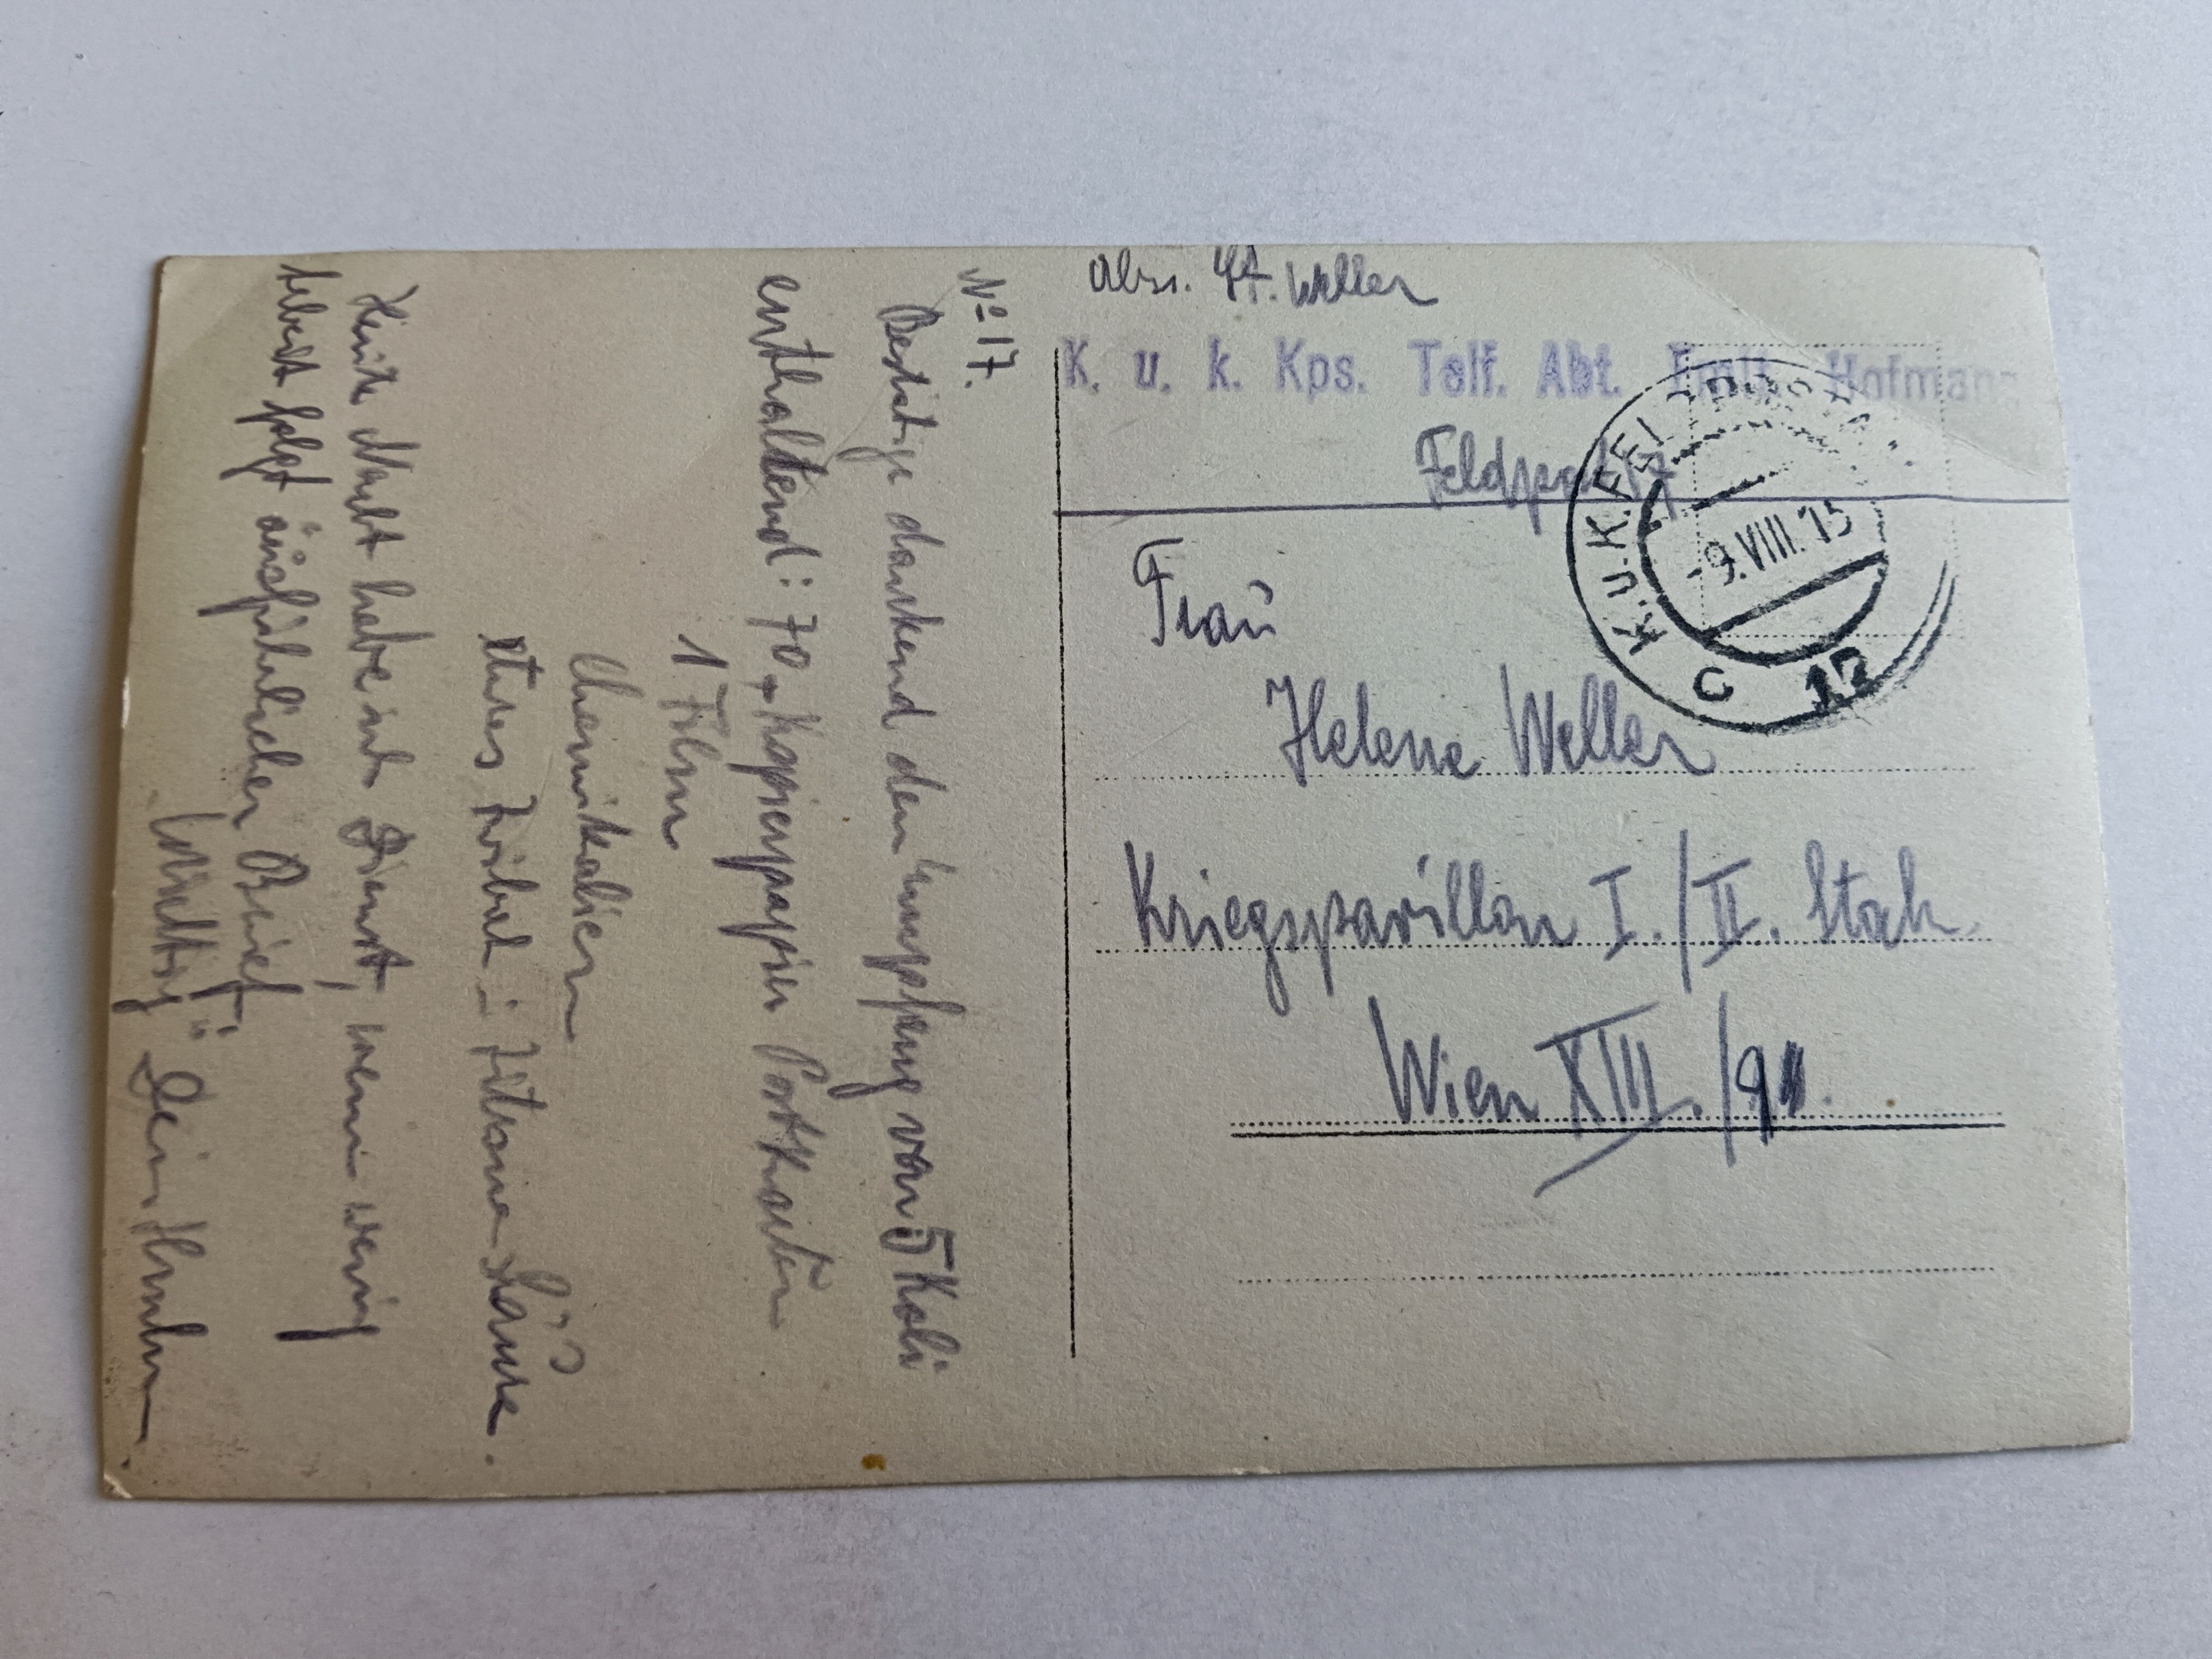 Abs. Lt. Weller
K. u. k. Kps. Telf. Abt. Hofmann
Feldpost 17
K. u. K. FELDPOST
-9. VIII. 15
C 12
Frau
Helene Weller
Kriegspavillon I./II. Stock
Wien XIII./91.
№ 17.
Bestätige dankend den Empfang von 5 Koli
enthaltend: 70 Kopierpapier Postkarten
1 Film
Chemikalien
etwas Zwieback – Zitronensäure.
Heute Nacht habe ich Dienst, wenn wenig
Arbeit folgt ausführlicher Brief.
Dein